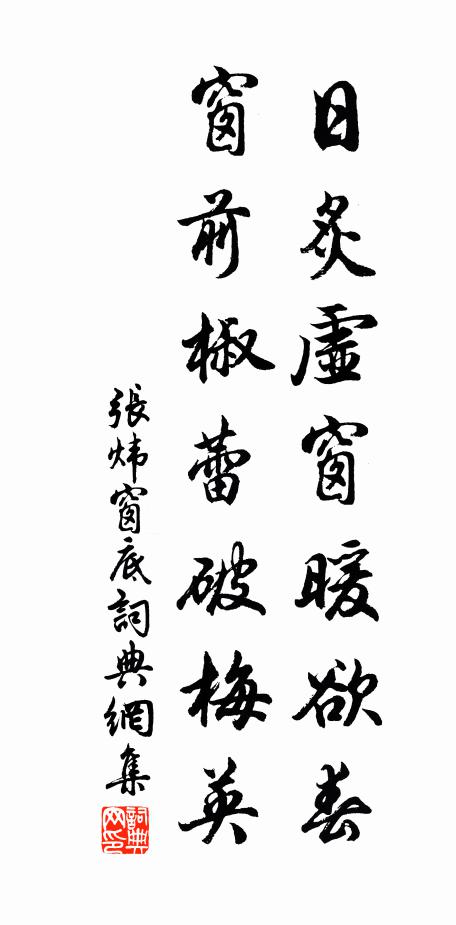 日炙虛窗暖欲春
窗前椒蕾破梅英
張炜窗底詞典網集
詞典網印